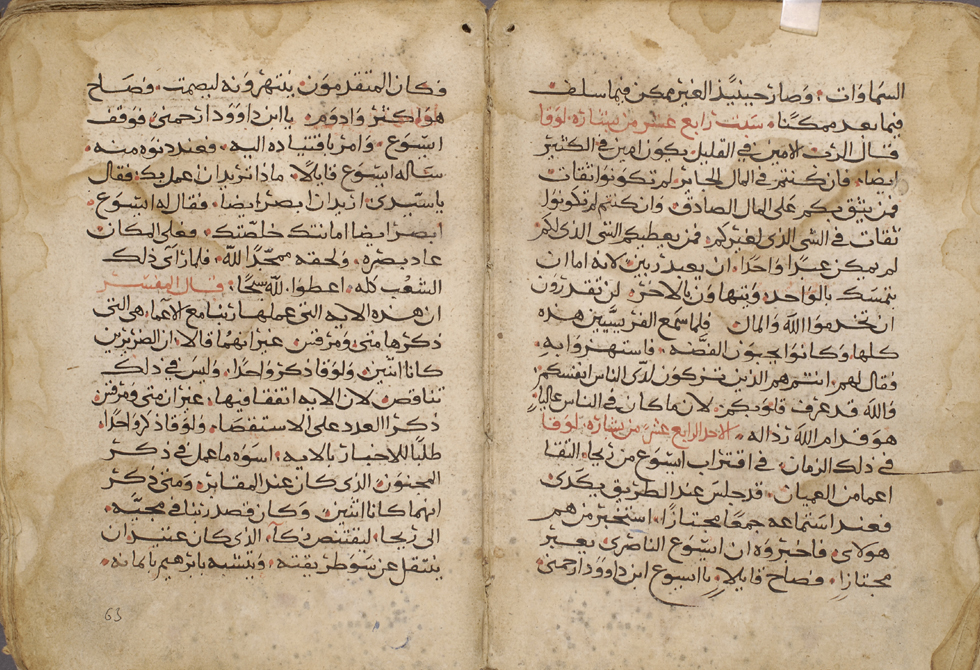 السماوات وصار حينيذ الغير ممكن فيما سلف
فيما بعد ممكنًا سبت رابع عشر من بشارة لوقا
قال الرب الامين في القليل يكون امين في الكثير
ايضا فان كنتم في المال الجائر لم تكونوا ثقات
فمن يثق بكم على المال الصادق وان كنتم لم تكونوا
ثقات في الشي الذي لغيركم فمن يعطيكم الشي الذي لكم
لم يمكن عبدًا واحدًا ان يعبد ربين لانه اما ان
يتمسك بالواحد ويتهاون بالاخر لن تقدرون
ان تخدموا الله والمال فلما سمع الفريسيين هذه
كلها وكانوا يحبون الفضه فاستهزوا به
وقال لهم انتم هم الذين تزكون لدى الناس انفسكم
والله قد عرف قلوبكم لان ما كان في الناس عاليا
هو قدام الله رذاله الاحد الرابع عشر من بشارة لوقا
في ذلك الزمان في اقتراب ايسوع من ريحا التقا
اعما من العميان قد جلس عند الطريق يكدى
فعند استماعه جمعًا مجتازًا استخبر من هم
هولاي فاخبروه ان ايسوع الناصري يعبر
مجتازا فصاح قايلا يا ايسوع ابن داوود ارحمني
وكان المتقدمون ينتهرونه ليصمت وصاح
هو اكثر وادوم يا ابن داوود ارحمني فوقف
ايسوع وامر باقتياده اليه فعند دنوه منه
ساله ايسوع قايلًا ماذا تريد ان اعمل بك فقال
يا سيدي اريد ان ابصر ايضا فقال له ايسوع
ابصر ايضا امانتك خلصتك فعلى المكان
عاد بصره ولحقه ممجدًا لله فلما راى ذلك
الشعب كله اعطوا لله سبحًا قال المفسر
ان هذه الايه التي عملها ربنا مع الاعما هي التي
ذكرها متى ومرقس غير انهما قالا ان الضريرين
كانا اثنين ولوقا ذكر واحدًا وليس في ذلك
تناقص لان الايه اتفقا فيها غير ان متى ومرقس
ذكرا العدد على الاستقصا ولوقا ذكر واحدًا
طلبًا للاخبار بالايه اسوه ما عمل في ذكر
المجنون الذي كان عند المقابر ومتى ذكر
انهما كانا اثنين وكان قصد ربنا في مجيه
الى ريحا ليقتنص زكا الذي كان عتيد ان
ينتقل عن سو طريقته ويتشبه بابرهيم بايمانه
63